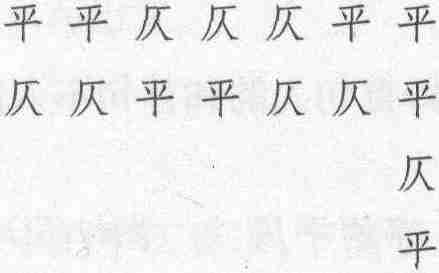 平平仄仄仄平平
仄仄平平仄仄平
仄
平